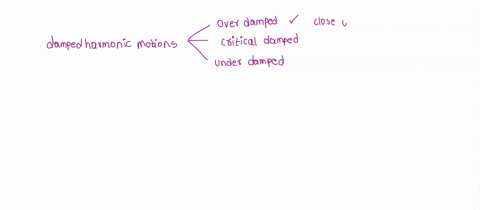 over damped ✓ close
damped harmonic motions
critical damped
under damped